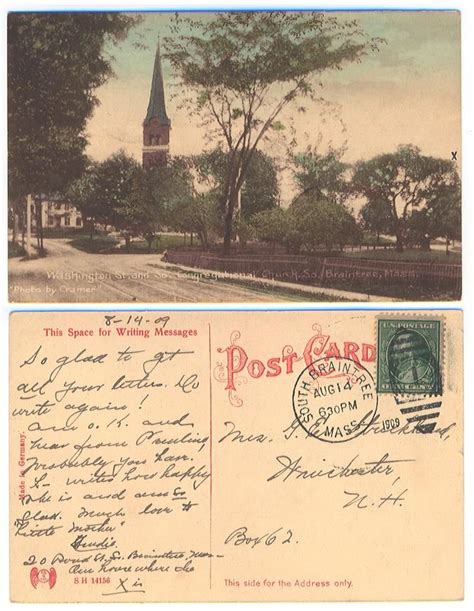 Washington St. and So. Congregational Church. So. Braintree, Mass.
"Photo by Cramer"
x
8-14-09
This Space for Writing Messages
POST CARD
So glad to get
all your letters. Do
write again!
Am O.K. and
hear from
Probably you have.
writes how happy
she is and am so
glad. Much love to
"Little Mother"
20 Pond St. So. Braintree, Mass
Our house where the
X is
Made in Germany.
S H 14156
SOUTH BRAINTREE
AUG 14
630PM
1909
MASS.
U.S. POSTAGE
Mrs. G. E.
Winchester,
N.H.
Box 62.
This side for the Address only.